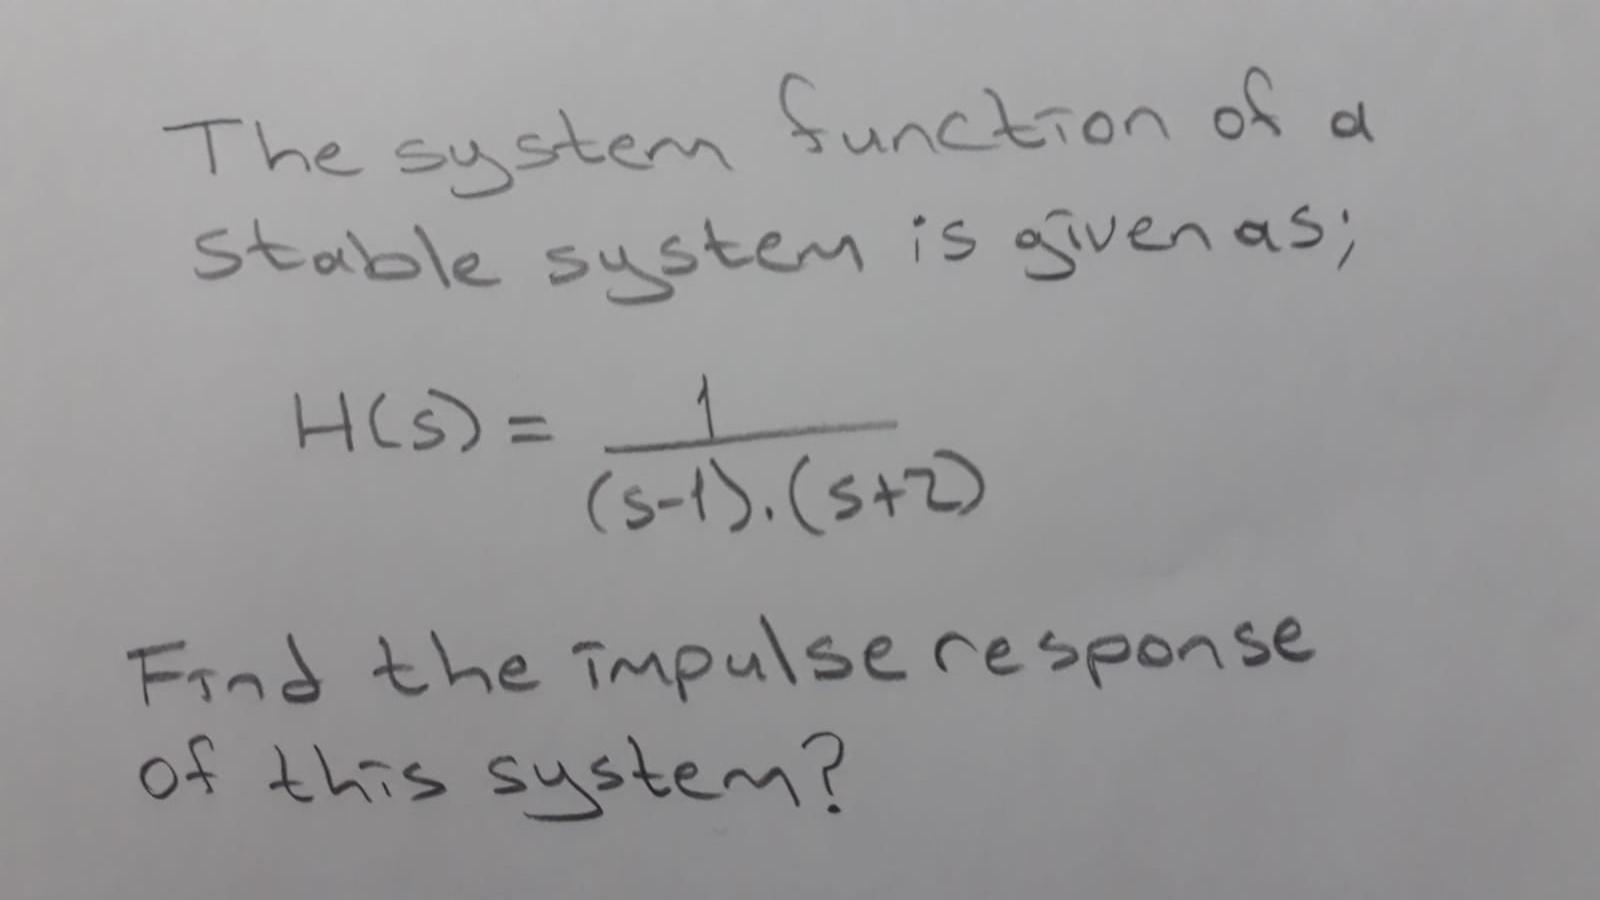 The system function of a
stable system is given as;
H(s) = 1 / (s-1).(s+2)
Find the impulse response
of this system?